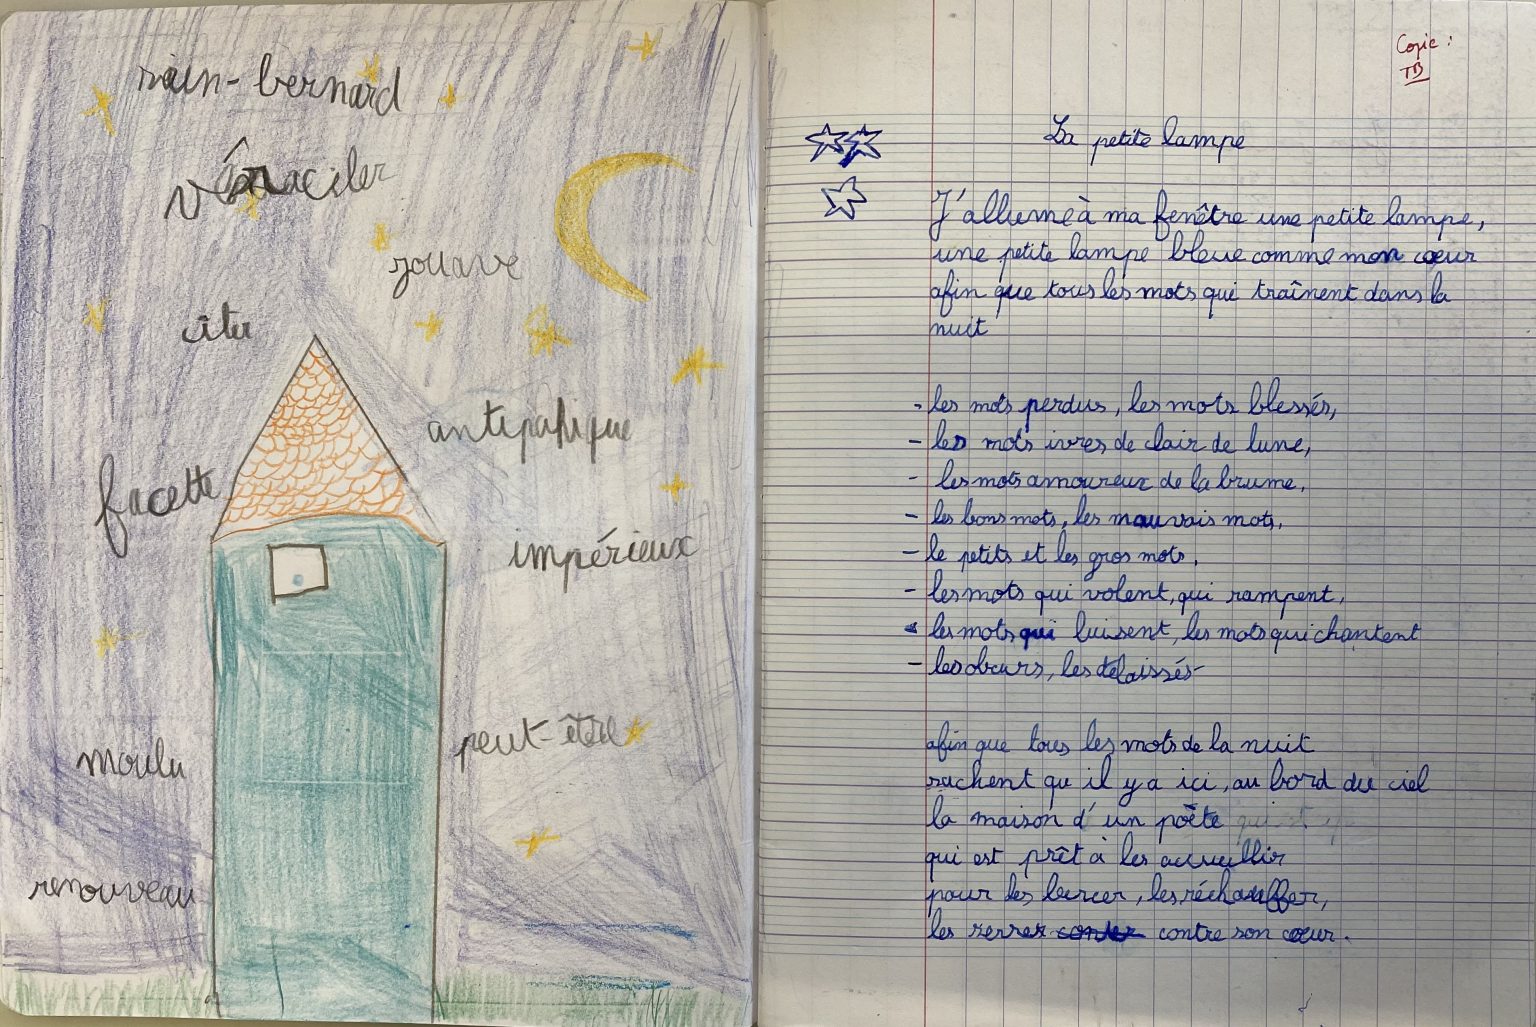 sain-bernard
vâraciler
zouave
îtu
antipafique
facette
impérieux
moulu
peut-être
renouveau
Copie :
TB
La petite lampe
J'allume à ma fenêtre une petite lampe,
une petite lampe bleue comme mon cœur
afin que tous les mots qui traînent dans la
nuit
- les mots perdus, les mots blessés,
- les mots ivres de clair de lune,
- les mots amoureux de la brume,
- les bons mots, les mauvais mots,
- le petits et les gros mots,
- les mots qui volent, qui rampent,
- les mots qui luisent, les mots qui chantent
- les obcurs, les délaissés
afin que tous les mots de la nuit
sachent qu'il y a ici, au bord du ciel
la maison d'un poète
qui est prêt à les accueillir
pour les bercer, les réchauffer,
les serrer contre son cœur.